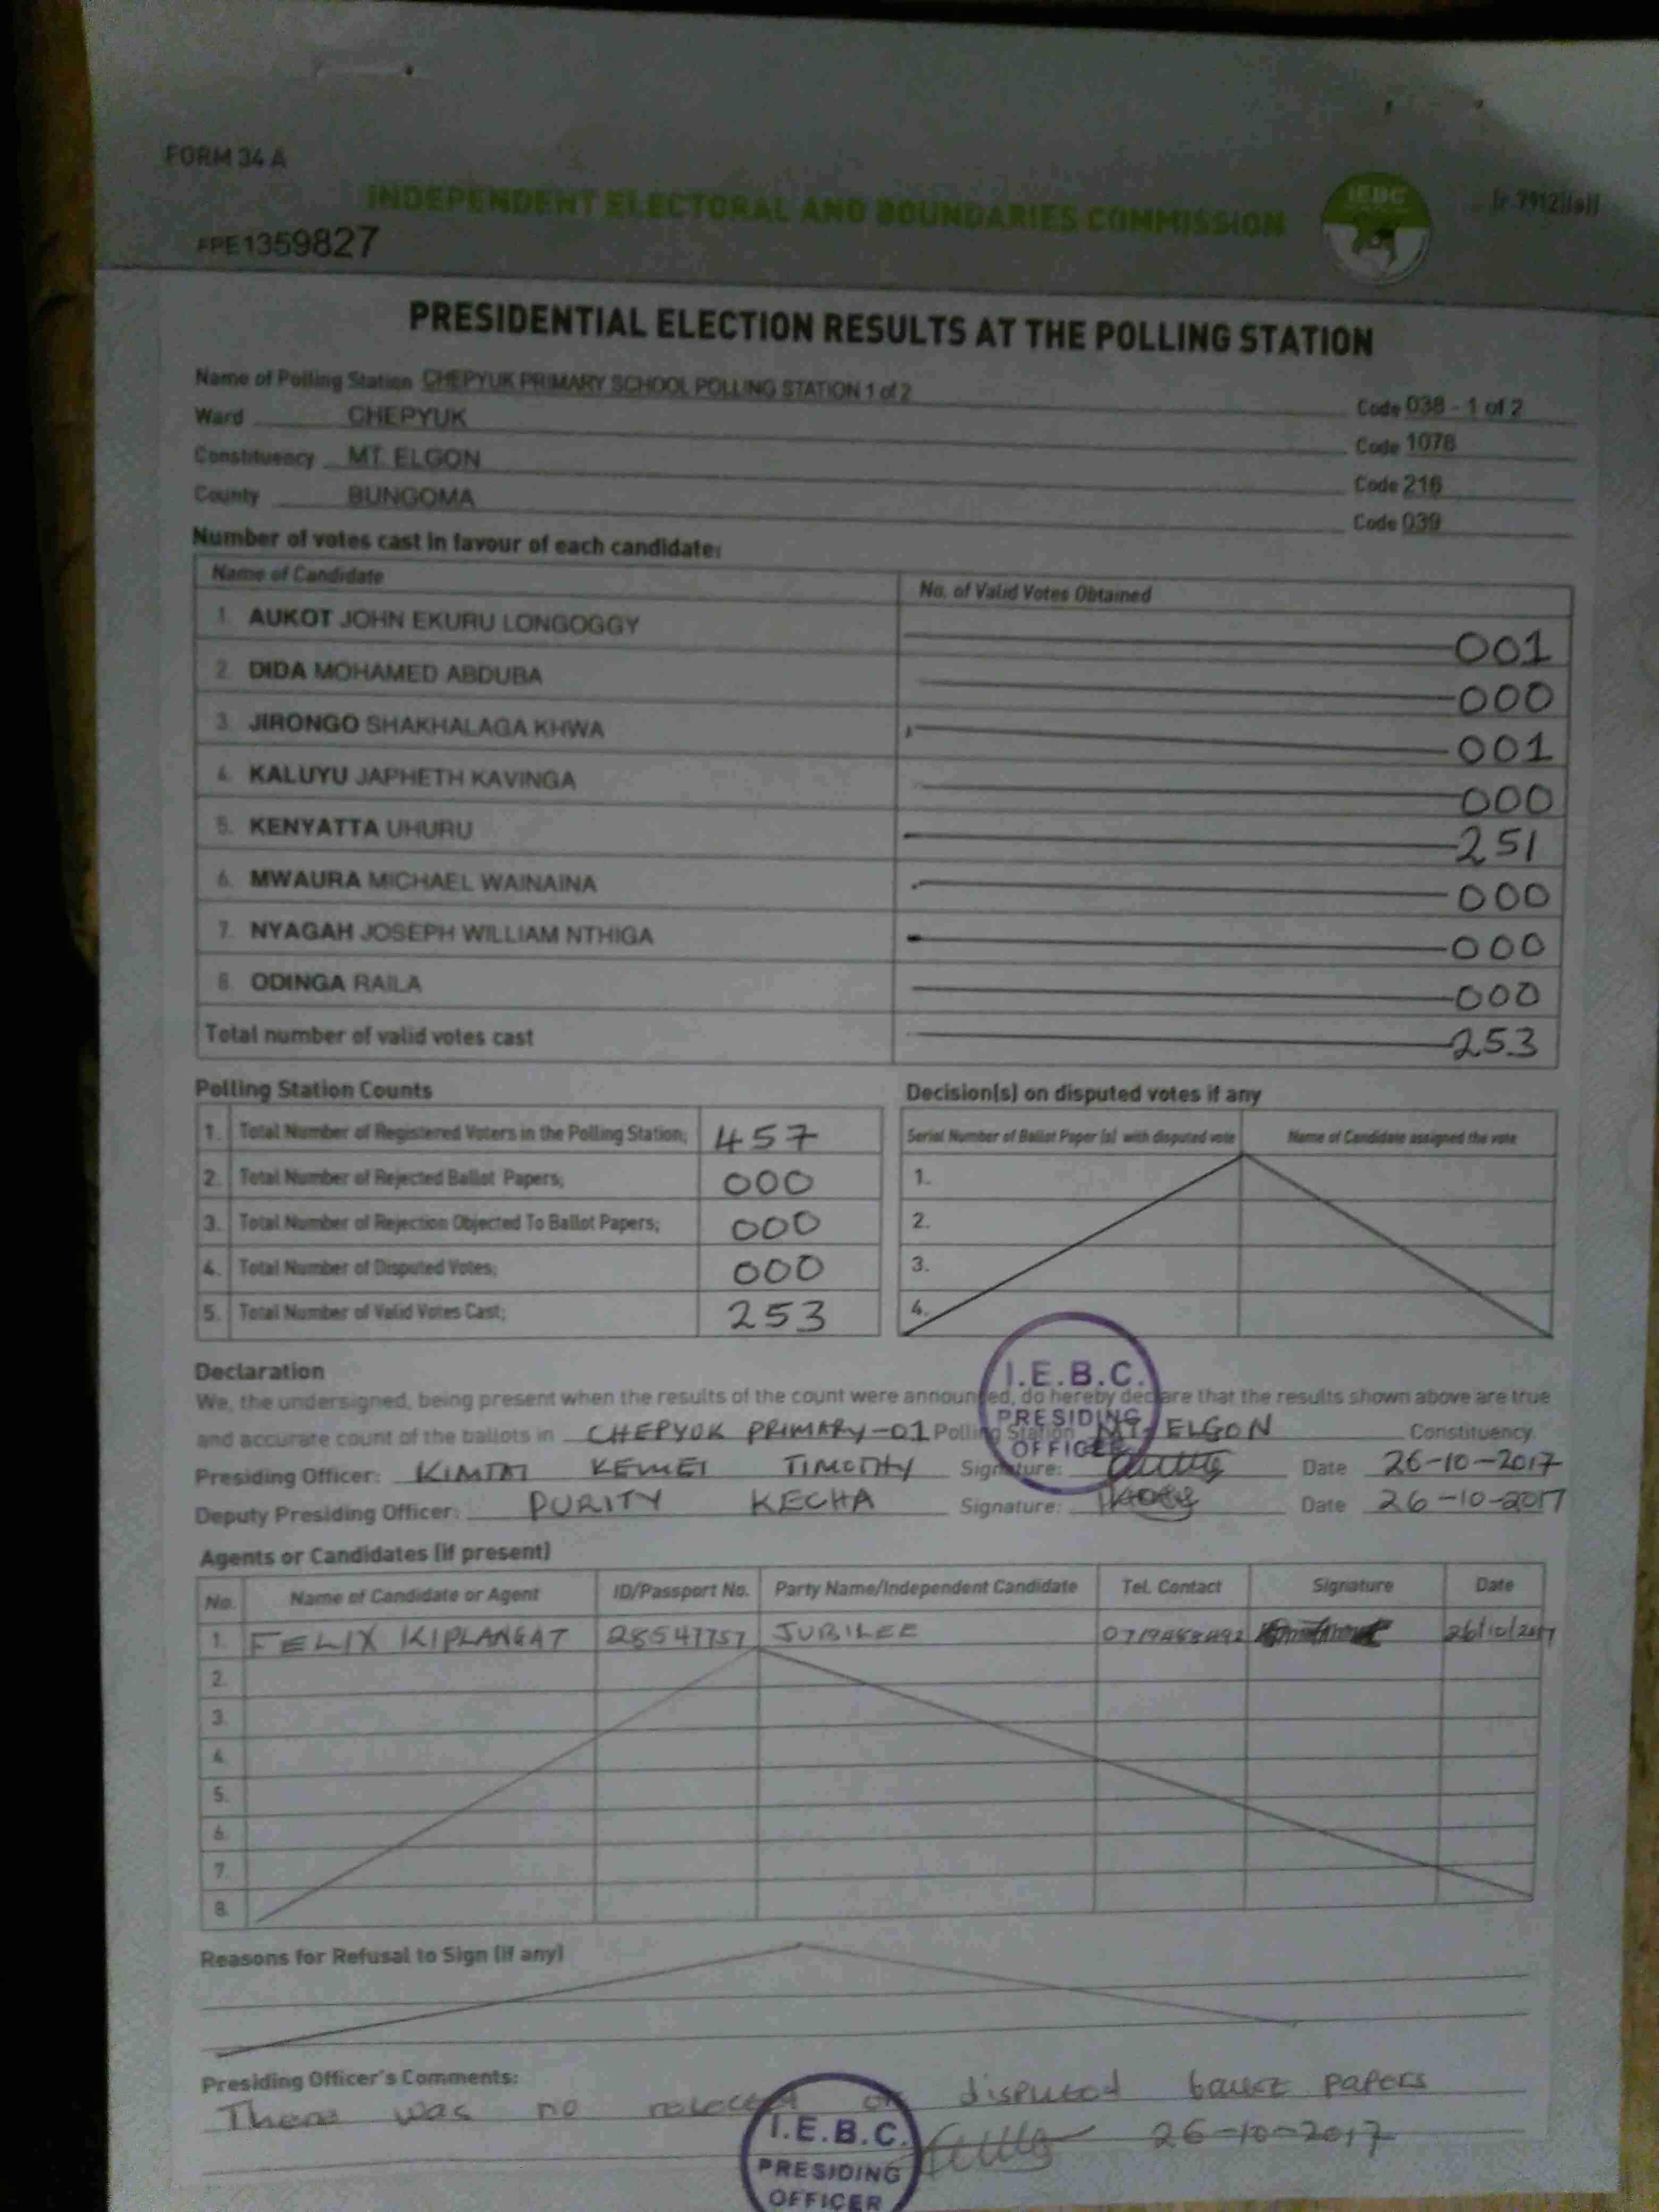 FORM 34 A
INDEPENDENT ELECTORAL AND BOUNDARIES COMMISSION
IEBC
FPE1359827
PRESIDENTIAL ELECTION RESULTS AT THE POLLING STATION
Name of Polling Station CHEPYUK PRIMARY SCHOOL POLLING STATION 1 of 2 Code 038 - 1 of 2
Ward CHEPYUK Code 1078
Constituency MT. ELGON Code 216
County BUNGOMA Code 039
Number of votes cast in favour of each candidate:
Name of Candidate No. of Valid Votes Obtained
1. AUKOT JOHN EKURU LONGOGGY 001
2. DIDA MOHAMED ABDUBA 000
3. JIRONGO SHAKHALAGA KHWA 001
4. KALUYU JAPHETH KAVINGA 000
5. KENYATTA UHURU 251
6. MWAURA MICHAEL WAINAINA 000
7. NYAGAH JOSEPH WILLIAM NTHIGA 000
8. ODINGA RAILA 000
Total number of valid votes cast 253
Polling Station Counts
1. Total Number of Registered Voters in the Polling Station; 457
2. Total Number of Rejected Ballot Papers; 000
3. Total Number of Rejection Objected To Ballot Papers; 000
4. Total Number of Disputed Votes; 000
5. Total Number of Valid Votes Cast; 253
Decision(s) on disputed votes if any
Serial Number of Ballot Paper (s) with disputed vote Name of Candidate assigned the vote
1.
2.
3.
4.
Declaration
We, the undersigned, being present when the results of the count were announced, do hereby declare that the results shown above are true
and accurate count of the ballots in CHEPYUK PRIMARY-01 Polling Station MT. ELGON Constituency.
I.E.B.C.
PRESIDING
OFFICER
Presiding Officer: KIMTAI KEMEI TIMOTHY Signature: Date 26-10-2017
Deputy Presiding Officer: PURITY KECHA Signature: Date 26-10-2017
Agents or Candidates (if present)
No. Name of Candidate or Agent ID/Passport No. Party Name/Independent Candidate Tel. Contact Signature Date
1. FELIX KIPLANGAT 28547757 JUBILEE 26/10/2017
2.
3.
4.
5.
6.
7.
8.
Reasons for Refusal to Sign (if any)
Presiding Officer's Comments:
There was no rejected or disputed ballot papers
26-10-2017
I.E.B.C.
PRESIDING
OFFICER